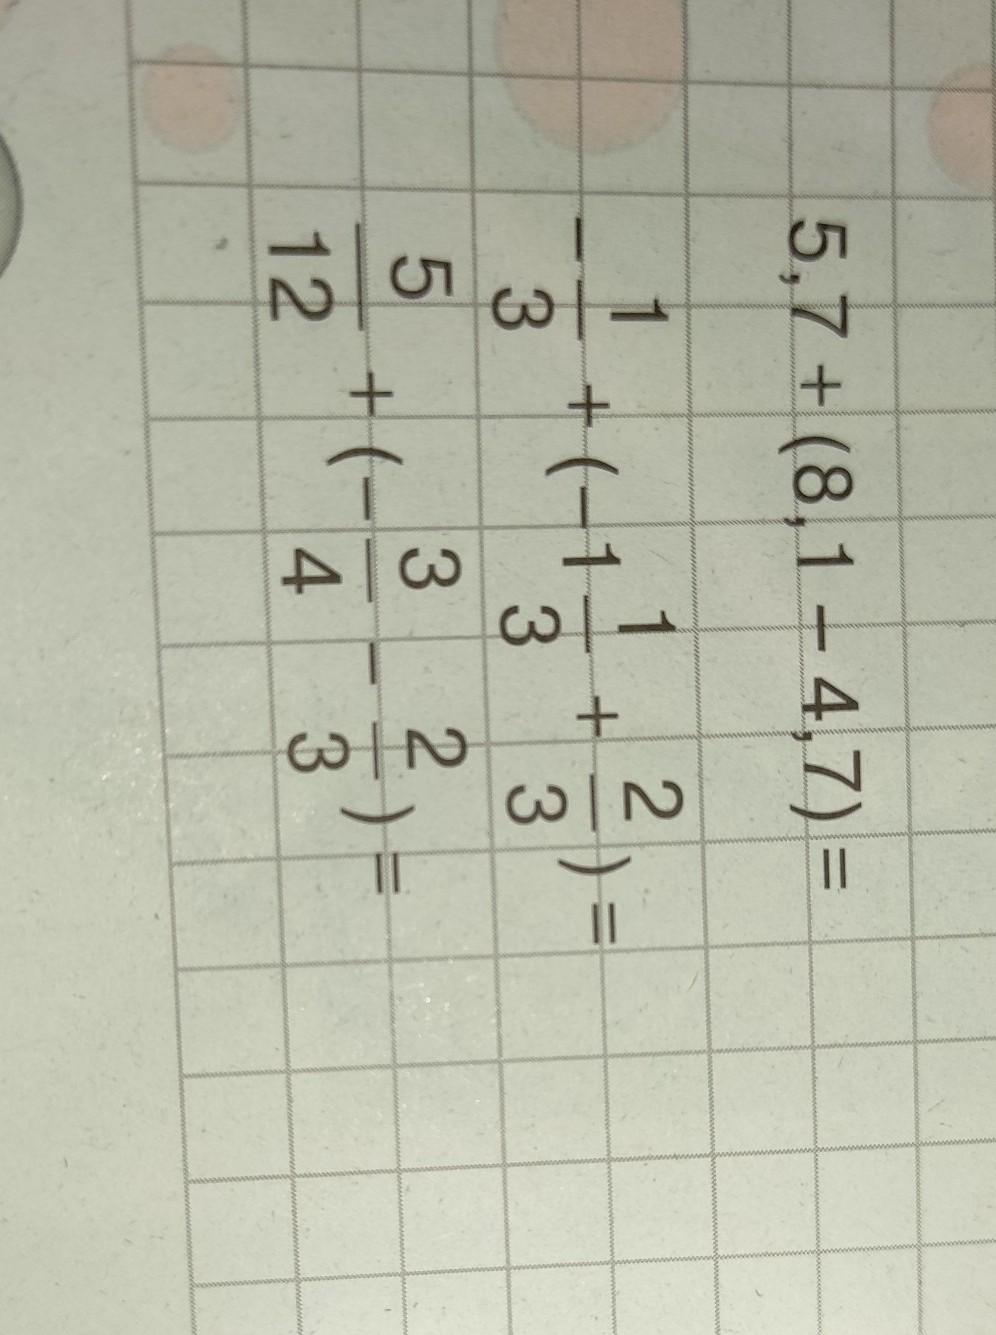 5,7 + (8,1 − 4,7) =
− 1/3 + (− 1 1/3 + 2/3) =
5/12 + (− 3/4 − 2/3) =